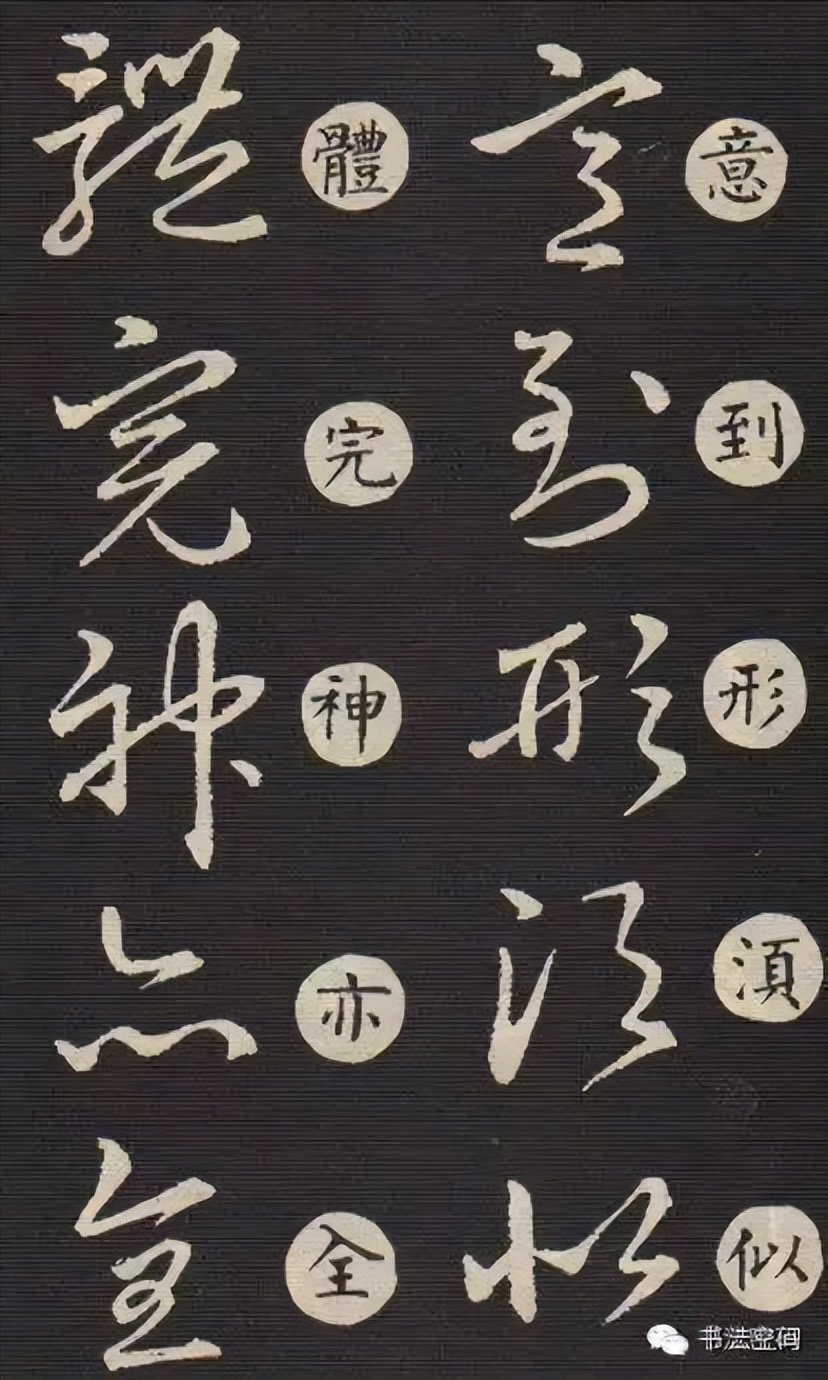 意到形須似
體完神亦全
书法密码